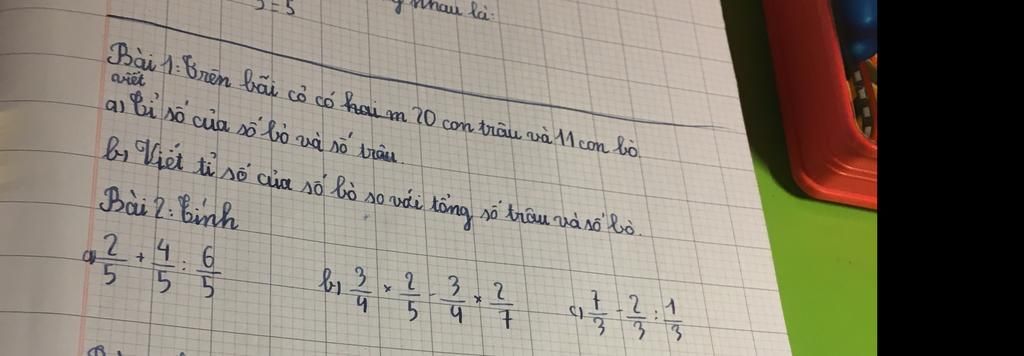 5 = 5
nhau là:
Bài 1: Trên bãi cỏ có 20 con trâu và 11 con bò
viết
a) Tỉ số của số bò và số trâu
b) Viết tỉ số của số bò so với tổng số trâu và số bò.
Bài 2: Tính
a) 2/5 + 4/5 : 6/5 b) 3/4 × 2/5 - 3/4 × 2/7 c) 7/3 - 2/3 : 1/3